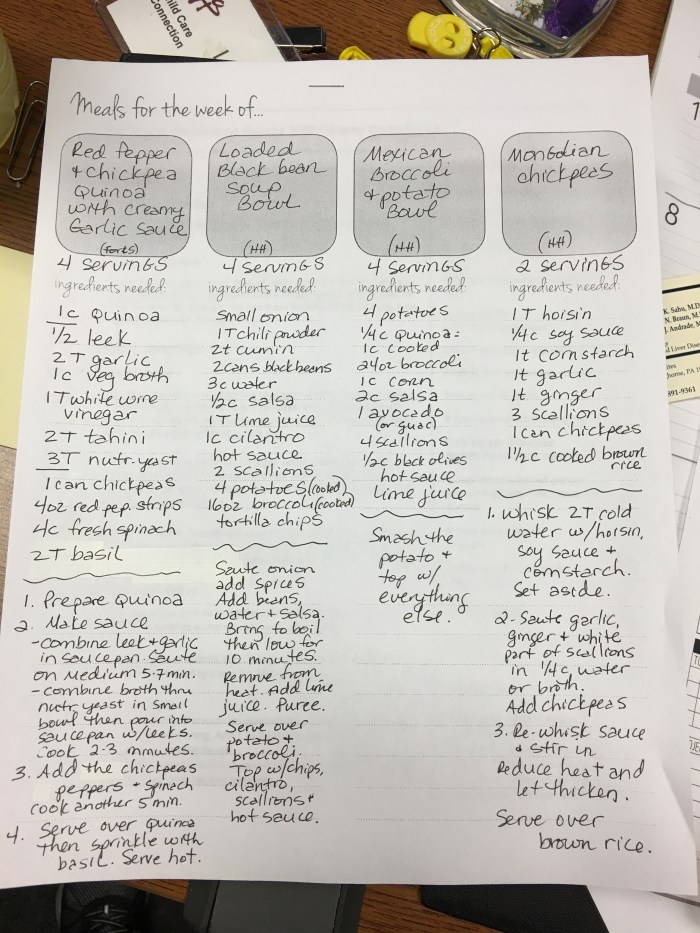 Child Care
Connection
Meals for the week of...
Red Pepper
+ chickpea
Quinoa
with creamy
Garlic Sauce
(forks)
4 servings
ingredients needed:
1c Quinoa
1/2 leek
2T garlic
1c veg broth
1T white wine
vinegar
2T tahini
3T nutr. yeast
1 can chickpeas
4oz red pep. strips
4c fresh spinach
2T basil
1. Prepare Quinoa
2. Make sauce
- combine leek + garlic
in saucepan. Saute
on Medium 5-7 min.
- combine broth thru
nutr yeast in small
bowl then pour into
saucepan w/leeks.
Cook 2-3 minutes.
3. Add the chickpeas
peppers + spinach
cook another 5 min.
4. Serve over Quinoa
then sprinkle with
basil. Serve hot.
Loaded
Black bean
Soup
Bowl
(HH)
4 servings
ingredients needed:
small onion
1T chili powder
2t cumin
2 cans black beans
3c water
1/2c salsa
1T lime juice
1c cilantro
hot sauce
2 scallions
4 potatoes (cooked)
16oz broccoli (cooked)
tortilla chips
Saute onion
add spices
Add beans,
water + salsa.
Bring to boil
then low for
10 minutes.
Remove from
heat. Add lime
juice. Puree.
Serve over
potato +
broccoli.
Top w/chips,
cilantro,
scallions +
hot sauce.
Mexican
Broccoli
+ potato
Bowl
(HH)
4 servings
ingredients needed:
4 potatoes
1/4c Quinoa =
1c cooked
24oz broccoli
1c corn
2c salsa
1 avocado
(or guac)
4 scallions
1/2c black olives
hot sauce
lime juice
Smash the
potato +
top w/
everything
else.
Mongolian
chickpeas
(HH)
2 servings
ingredients needed:
1T hoisin
1/4c soy sauce
1t cornstarch
1t garlic
1t ginger
3 scallions
1 can chickpeas
1 1/2c cooked brown
rice
1. Whisk 2T cold
water w/hoisin,
soy sauce +
cornstarch.
Set aside.
2- Saute garlic,
ginger + white
part of scallions
in 1/4c water
or broth.
Add chickpeas
3. Re-whisk sauce
+ stir in
Reduce heat and
let thicken.
Serve over
brown rice.
1
8
K. Sahu, M.D
N. Braun, M.
J. Andrade, M
Liver Dise
891-9361